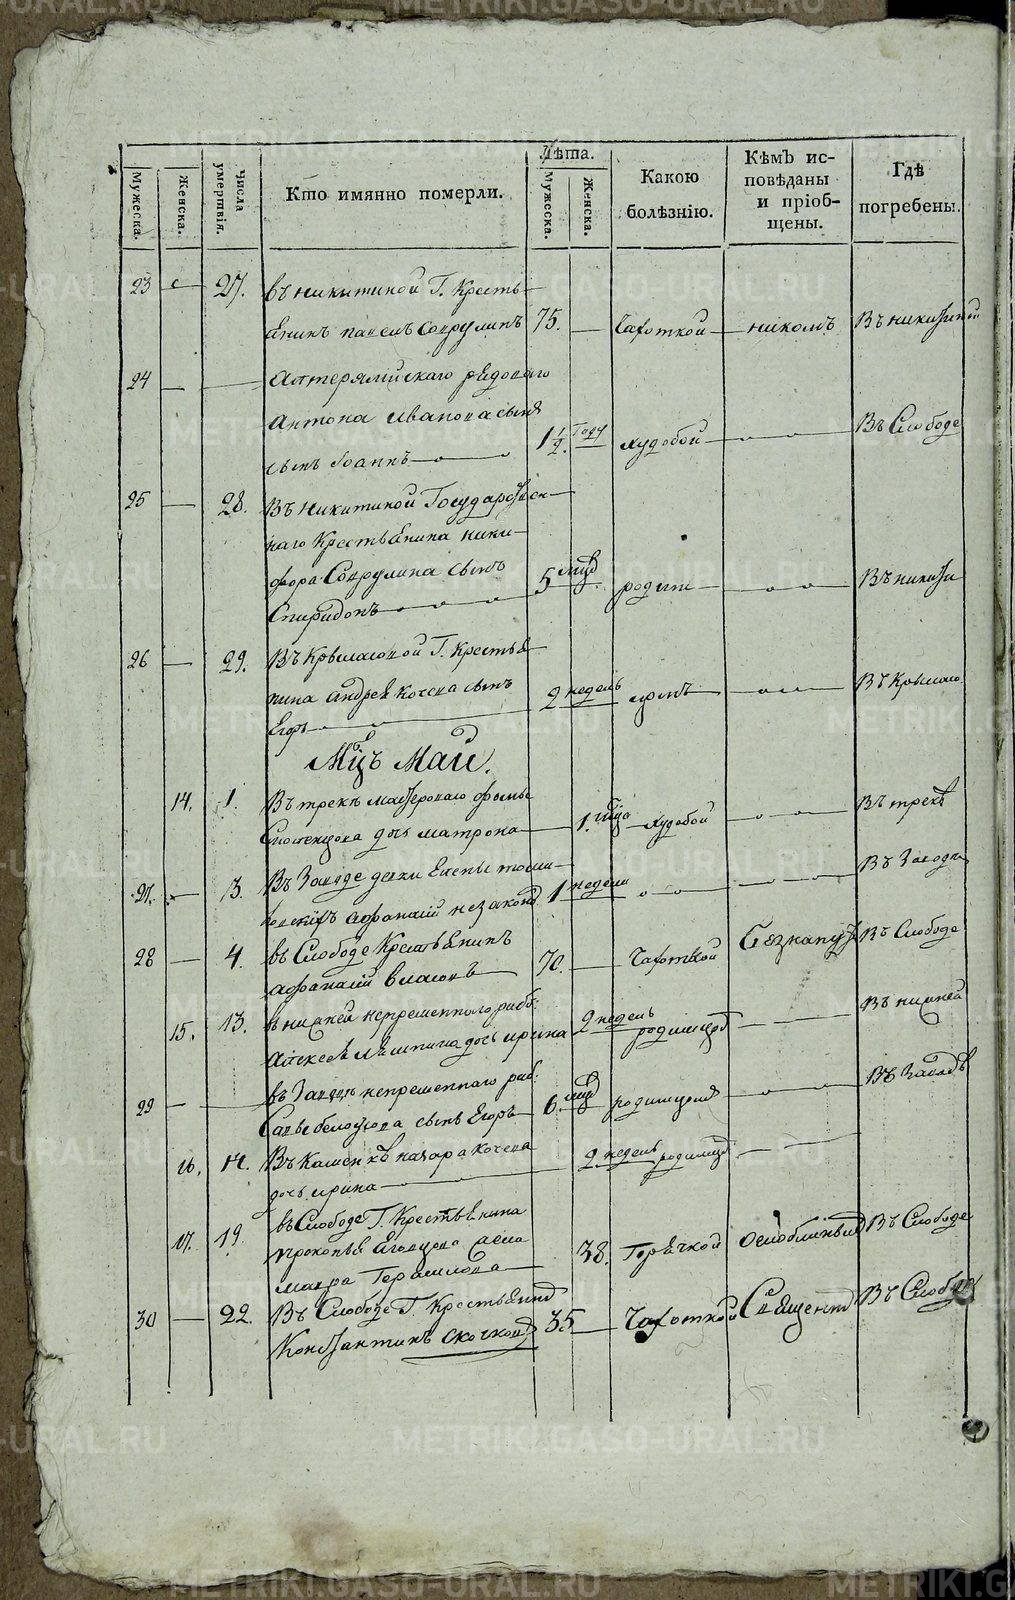 Мужеска.
Женска.
Числа умертвія.
Кто имянно померли.
Лѣта.
Мужеска.
Женска.
Какою болѣзнію.
Кѣмъ исповѣданы и пріобщены.
Гдѣ погребены.
23 27. въ никитиной Г. Кресть
янинъ павелъ 75. Чахоткой никомъ Въ никитиной
24
Антона Иванова сына
сынъ Іоаннъ 1 1/2 году худобой Въ Слободе
25 28. Въ никитиной Государствен
наго Крестьянина ники
фора сынъ
Спиридонъ 5 мцъ родим Въ никити
26 29. Въ Крыласовой Г. Крестья
нина андрея кочева сынъ
Егоръ 2 недель Въ Крыласо
Мцъ Маій.
14. 1. Въ треке мастероваго фомы
дочь матрона 1. мцца худобой Въ треке
27. 3. Въ Заводе девки Елены
афанасій незакон 1 недели Въ Заводе
28 4. въ Слободе Крестьянинъ
афанасій власовъ 70. Чахоткой Въ Слободе
15. 13. в нижней непременного раб:
Алексея дочь ирина 2 недель родимцом Въ нижней
29 въ Заводе непременного раб:
Савы белоусова сынъ Егоръ 6. мцъ родимцомъ Въ Заводе
16. 14. Въ Каменке назара кочева
дочь ирина 2 недель родимцо
17. 19. въ Слободе Г. Крестьянина
прокопья жена
мавра Герасимова 38. Горячкой Въ Слободе
30 22. Въ Слободе Г. Крестьянинъ
Константинъ Скочковъ 35 Чахоткой Священни Въ Слободе
METRIKI.GASO-URAL.RU